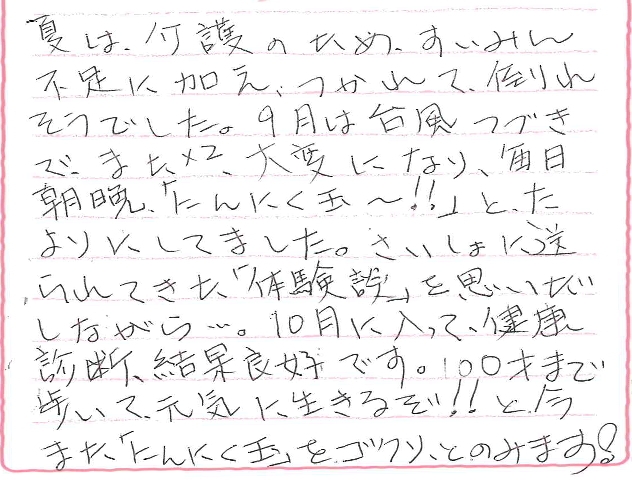 夏は、介護のため、すいみん
不足に加え、つかれて、倒れ
そうでした。9月は台風つづき
で、また×2、大変になり、毎日
朝晩、「にんにく玉〜!!」と、た
よりにしてました。さいしょに送
られてきた、「体験談」を思いだ
しながら…。10月に入って、健康
診断、結果良好です。100才まで
歩いて、元気に生きるぞ!!と、今
また、「にんにく玉」をゴクリ、とのみます!